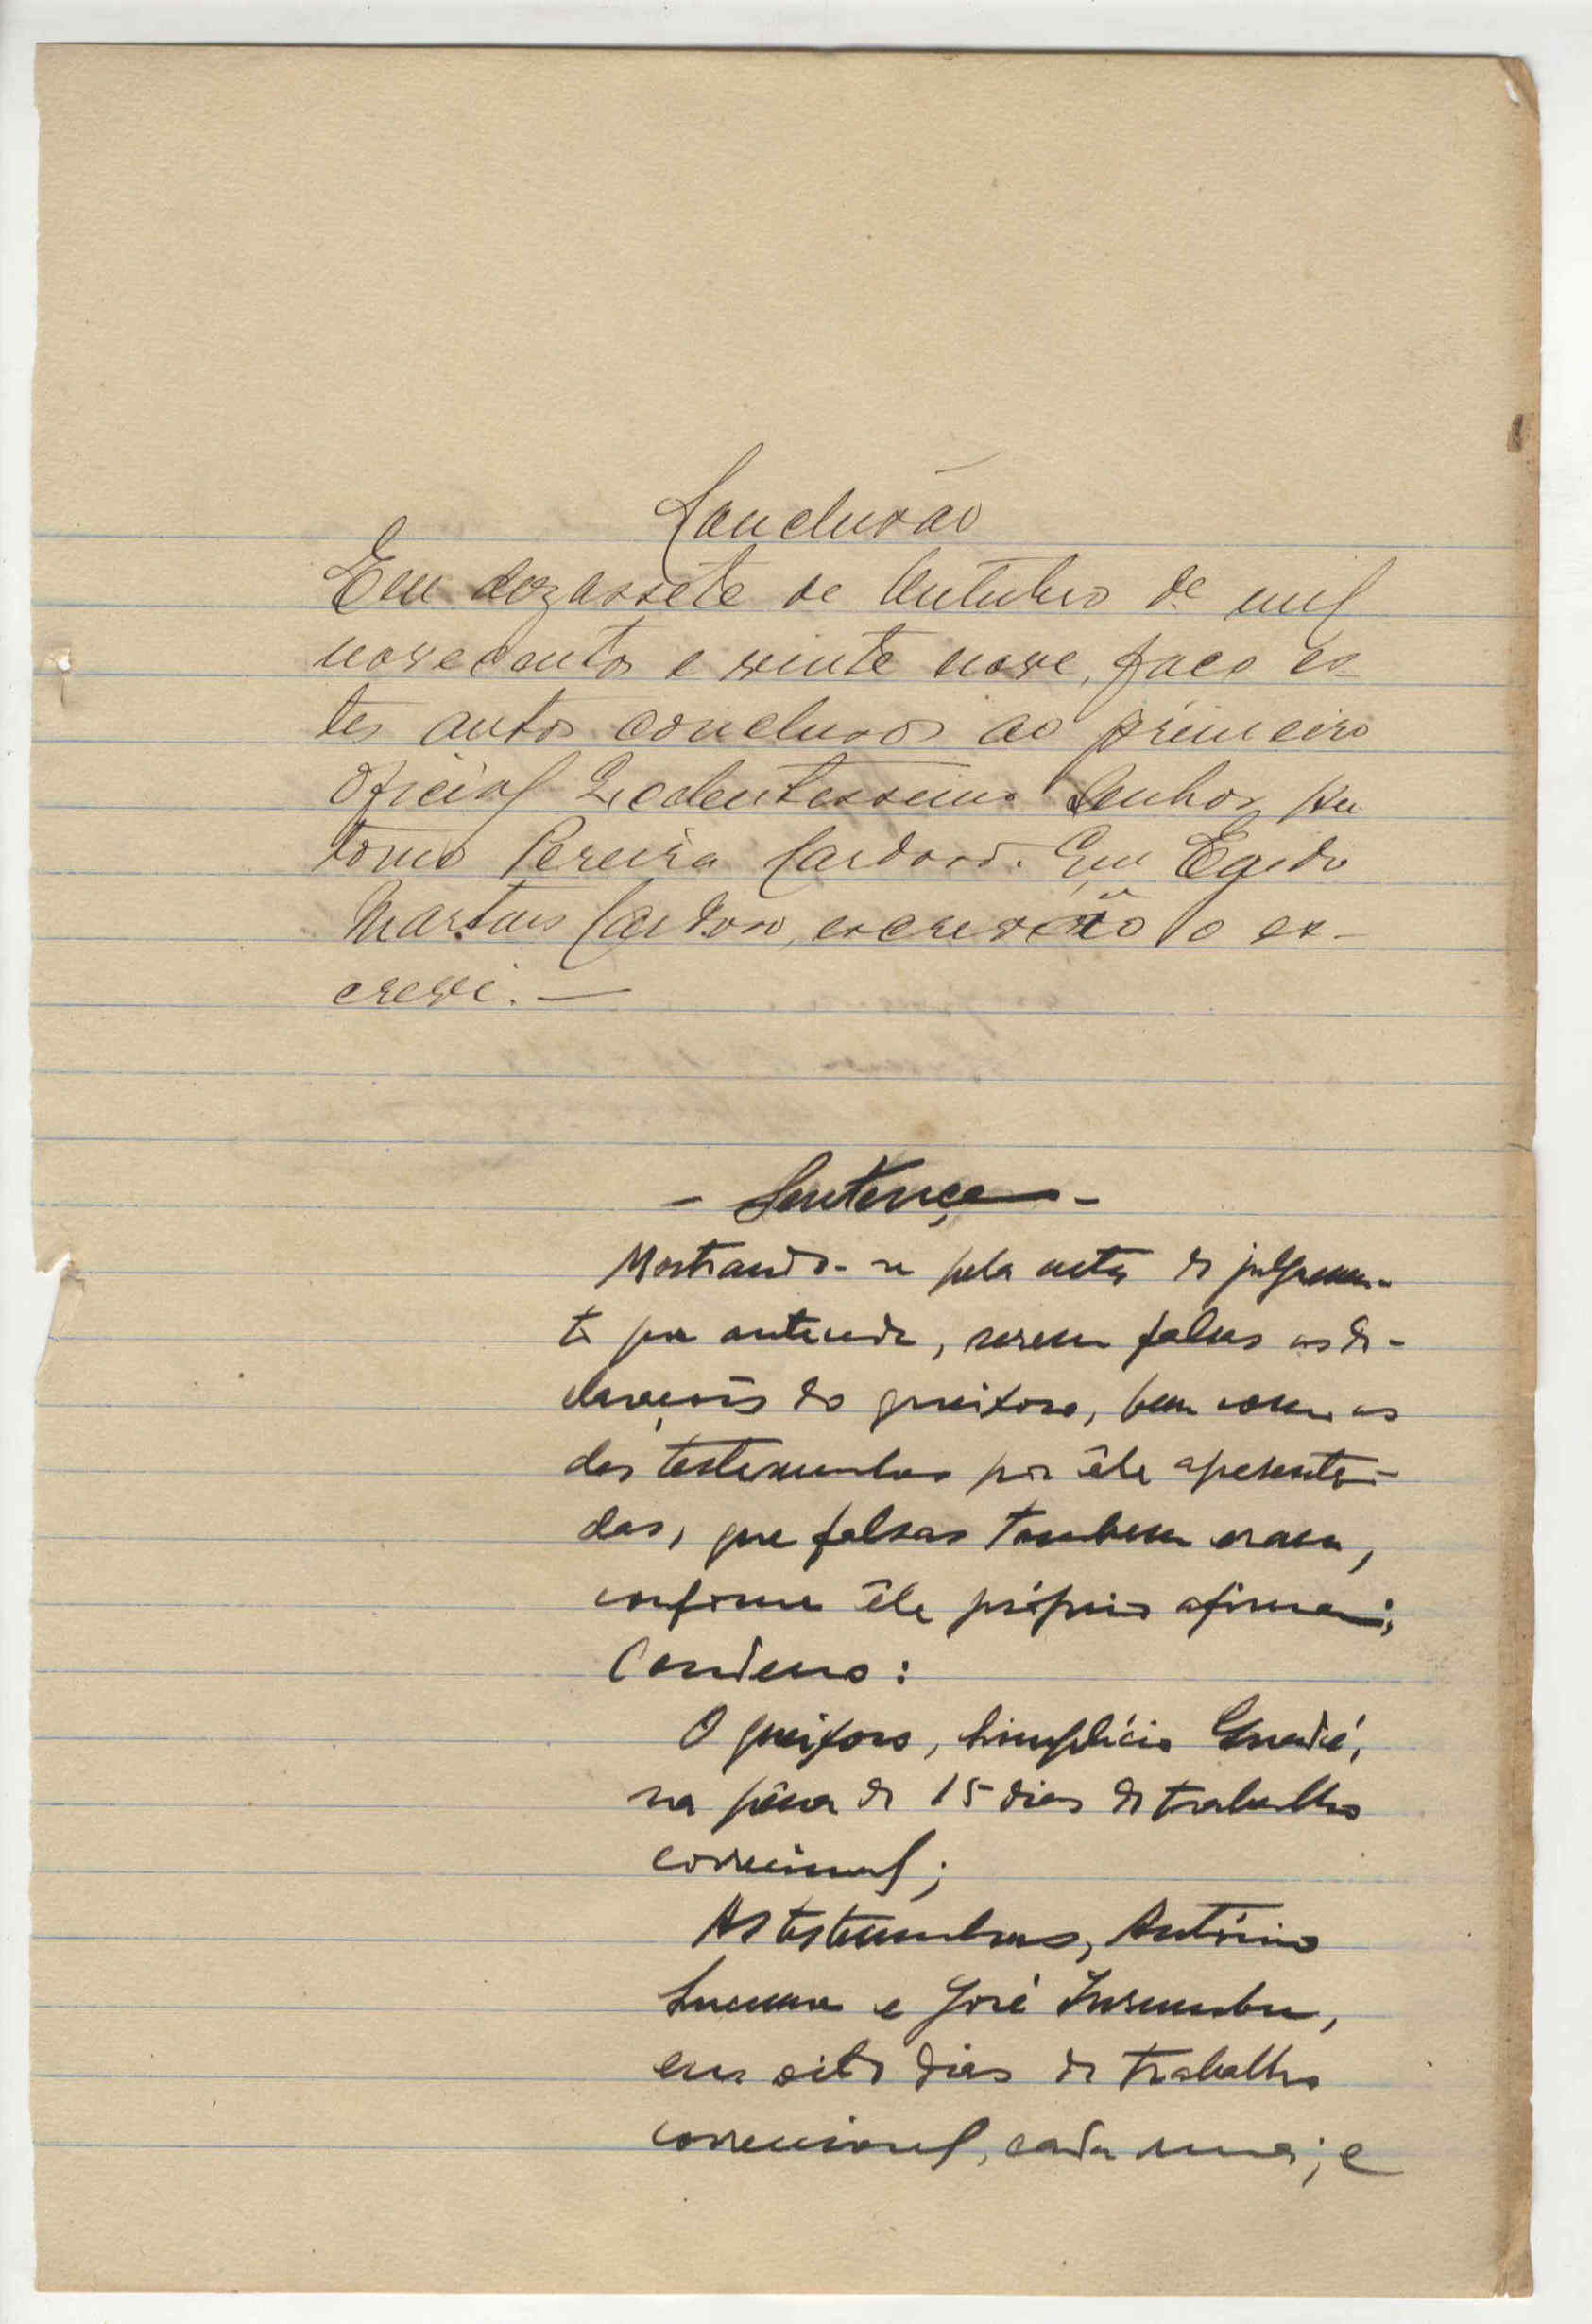 Conclusão
Em dezassete de Outubro de mil
novecentos e vinte nove, faço es-
tes autos conclusos ao primeiro
oficial Excelentessimo Senhor An
tonio Pereira Cardoso. Eu Egido
Martins Cardoso, escrivão o es-
crevi. —
- Sentença -
Mostrando-se pela acta de julgamen-
to que antecede, serem falsas as de-
clarações do queixoso, bem como as
das testemunhas por êle apresenta-
das, que falsas tambem eram,
conforme êle próprio afirma;
Condeno:
O queixoso, Simplício
na pêna de 15 dias de trabalho
correcional;
As testemunhas, António
e José
em oito dias de trabalho
correcional, cada uma; e